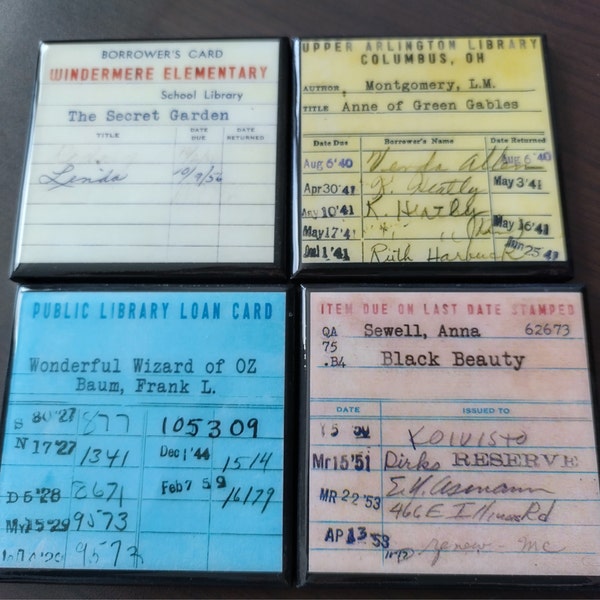 BORROWER'S CARD
WINDERMERE ELEMENTARY
School Library
The Secret Garden
TITLE DATE DUE DATE RETURNED
Linda 10/9/56
UPPER ARLINGTON LIBRARY
COLUMBUS, OH
AUTHOR Montgomery, L.M.
TITLE Anne of Green Gables
Date Due Borrower's Name Date Returned
Aug 6'40 Aug 6'40
Apr 30'41 R. Heatly May 3'41
May 10'41 R. Heatly
May 17'41 May 16'41
1'41 Ruth Jun 25'41
PUBLIC LIBRARY LOAN CARD
Wonderful Wizard of OZ
Baum, Frank L.
S 30'27 877 105309
N 17'27 1341 Dec 1'44 1514
D 6'28 2671 Feb 7 59 16179
My 15'29 9573
9573
ITEM DUE ON LAST DATE STAMPED
QA Sewell, Anna 62673
75
.B4 Black Beauty
DATE ISSUED TO
KOIVISTO
Mr 15'51 Dirks RESERVE
MR 22'53 E.H. Asmann
466 E Illinois Rd
AP 13'53 renew - mc